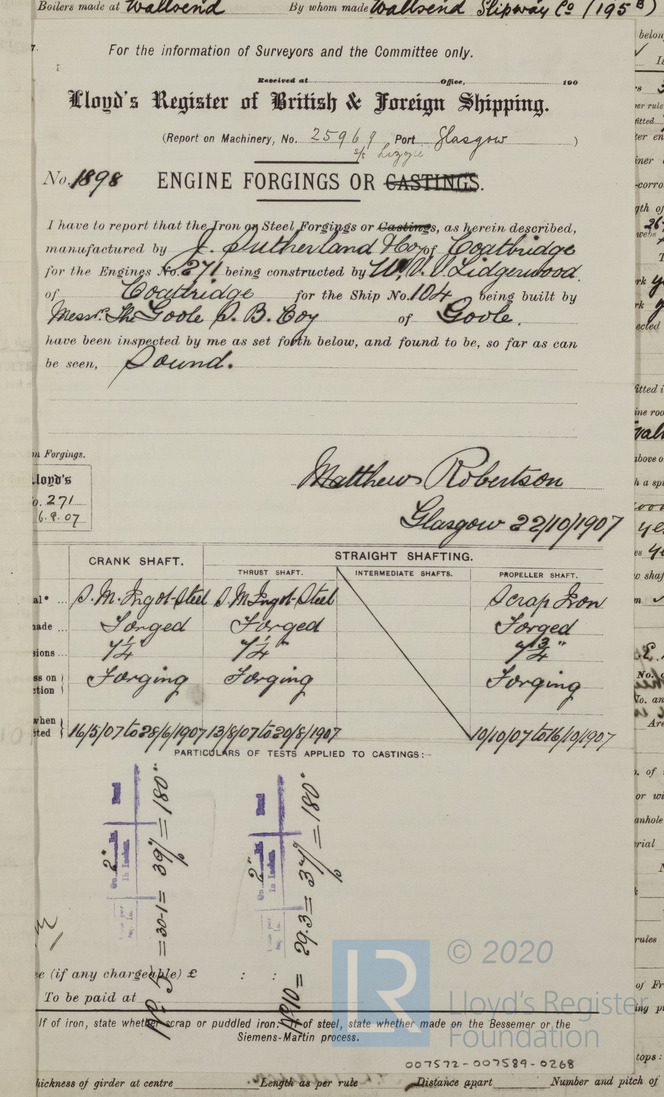 Boilers made at Wallsend By whom made Wallsend Slipway Co (195B)
For the information of Surveyors and the Committee only.
Received at Office, 190
Lloyd's Register of British & Foreign Shipping.
(Report on Machinery, No. 25969 Port Glasgow )
s/s Lizzie
No. 1898 ENGINE FORGINGS OR CASTINGS.
I have to report that the Iron or Steel Forgings or Castings, as herein described,
manufactured by J. Sutherland & Co of Coatbridge
for the Engines No. 271 being constructed by W. V. V. Lidgerwood
of Coatbridge for the Ship No. 104 being built by
Messrs. The Goole S. B. Coy of Goole.
have been inspected by me as set forth below, and found to be, so far as can
be seen, Sound.
n Forgings.
Lloyd's
o. 271
6.9.07
Matthew Robertson
Glasgow 22/10/1907
CRANK SHAFT. STRAIGHT SHAFTING.
THRUST SHAFT. INTERMEDIATE SHAFTS. PROPELLER SHAFT.
al* ... S. M. Ingot Steel S. M. Ingot Steel Scrap Iron
ade ... Forged Forged Forged
sions ... 7¼" 7¼" 7¾"
ss on Forging Forging Forging
ction
when 16/5/07 to 28/6/1907 13/8/07 to 20/8/1907 10/10/07 to 16/10/1907
ted
PARTICULARS OF TESTS APPLIED TO CASTINGS:—
No. 5 = 30.1 = 39% = 180°
on 2" in Inches Bend
No. 10 = 29.3 = 37% = 180°
on 2" in Inches Bend
e (if any chargeable) £ : :
To be paid at
If of iron, state whether scrap or puddled iron: if of steel, state whether made on the Bessemer or the
Siemens-Martin process.
© 2020
Lloyd's Register
Foundation
007572-007589-0268
hickness of girder at centre Length as per rule Distance apart Number and pitch of